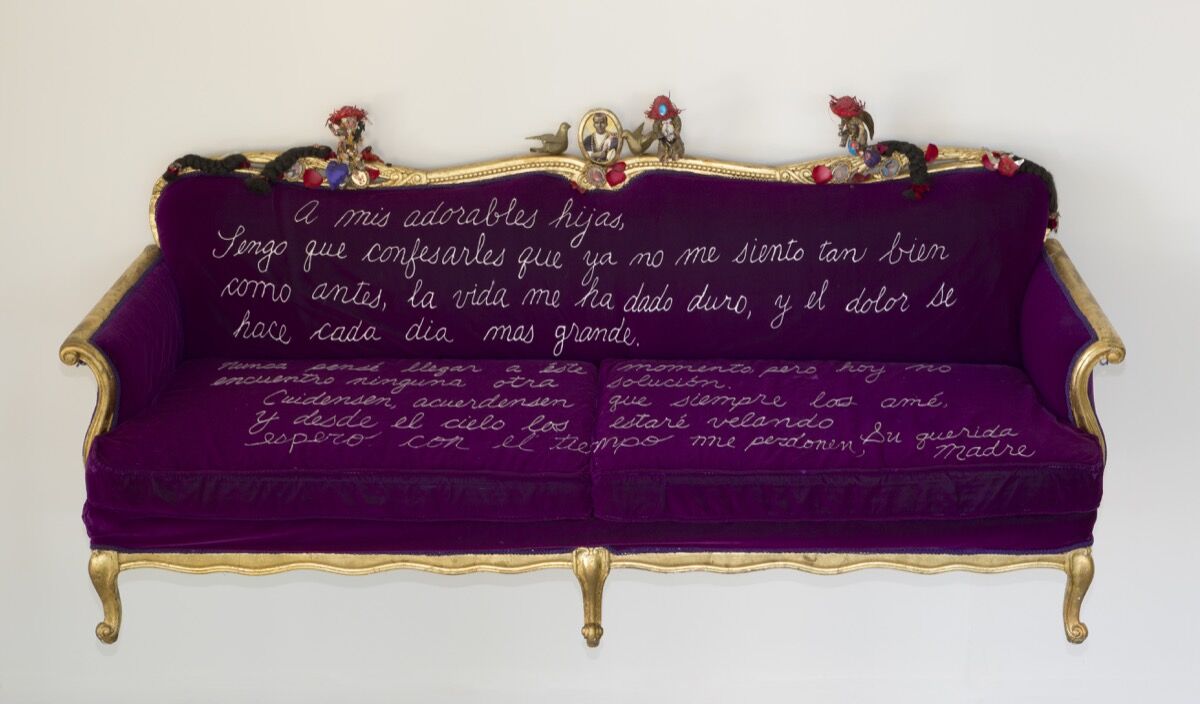 A mis adorables hijas,
Tengo que confesarles que ya no me siento tan bien
como antes, la vida me ha dado duro, y el dolor se
hace cada dia mas grande.
nunca pensé llegar a éste momento, pero hoy no
encuentro ninguna otra solución.
Cuidensen, acuerdensen que siempre los amé.
Y desde el cielo los estaré velando
espero con el tiempo me perdonen, Su querida
madre